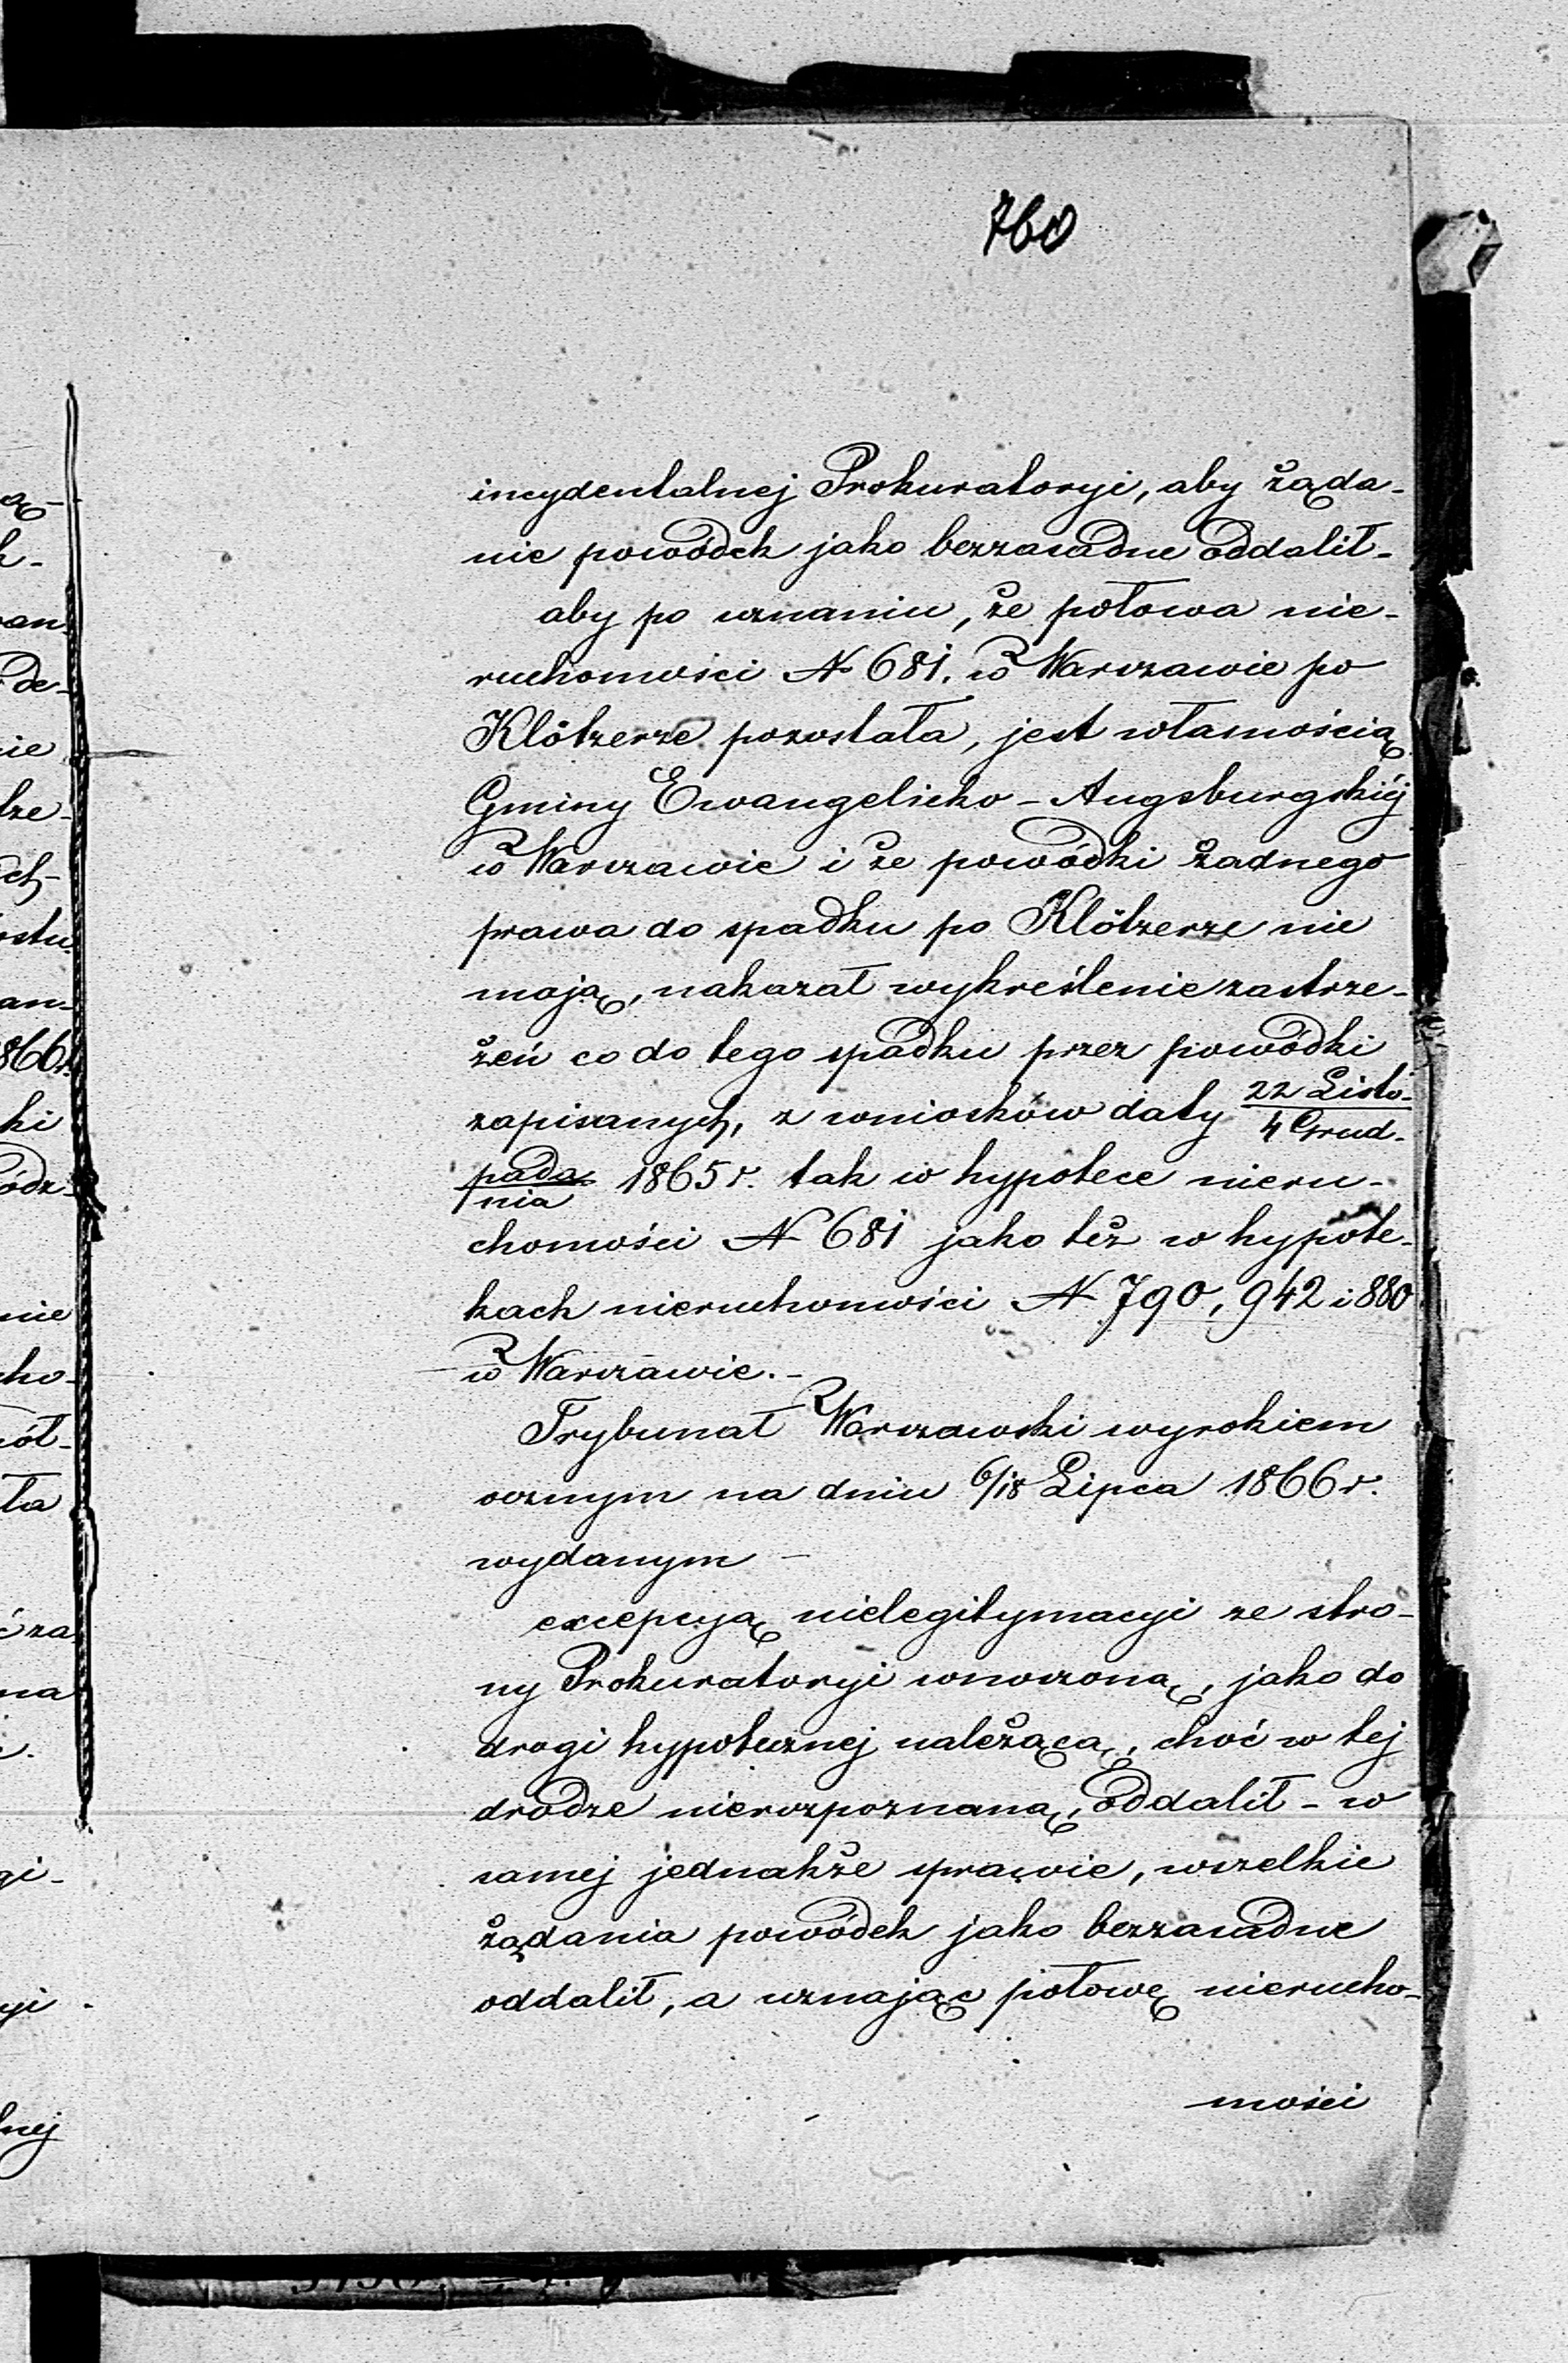 760
incydentalnej Prokuratoryi, aby żąda-
nie powódek jako bezzasadne oddalił-
aby po uznaniu, że połowa nie-
ruchomości N 681. w Warszawie po
Klötzerze pozostała, jest własnością
Gminy Ewangelicko-Augsburgskiéj
w Warszawie i że powódki żadnego
prawa do spadku po Klötzerze nie
mają, nakazał wykreślenie zastrze-
żeń co do tego spadku przez powódki
zapisanych, z wniosków daty 22 Listo-/4 Grud-
pada/nia 1865 r. tak w hypotece nieru-
chomości N 681 jako też w hypote-
kach nieruchomości N 790, 942 i 880
w Warszawie.-
Trybunał Warszawski wyrokiem
ocznym na dniu 6/18 Lipca 1866 r.
wydanym -
excepcyą nielegitymacyi ze stro-
ny Prokuratoryi wnoszoną, jako do
drogi hypotecznej należącą, choć w tej
drodze nierozpoznaną, oddalił - w
samej jednakże sprawie, wszelkie
żądania powódek jako bezzasadne
oddalił, a uznając połowę nierucho-
mości